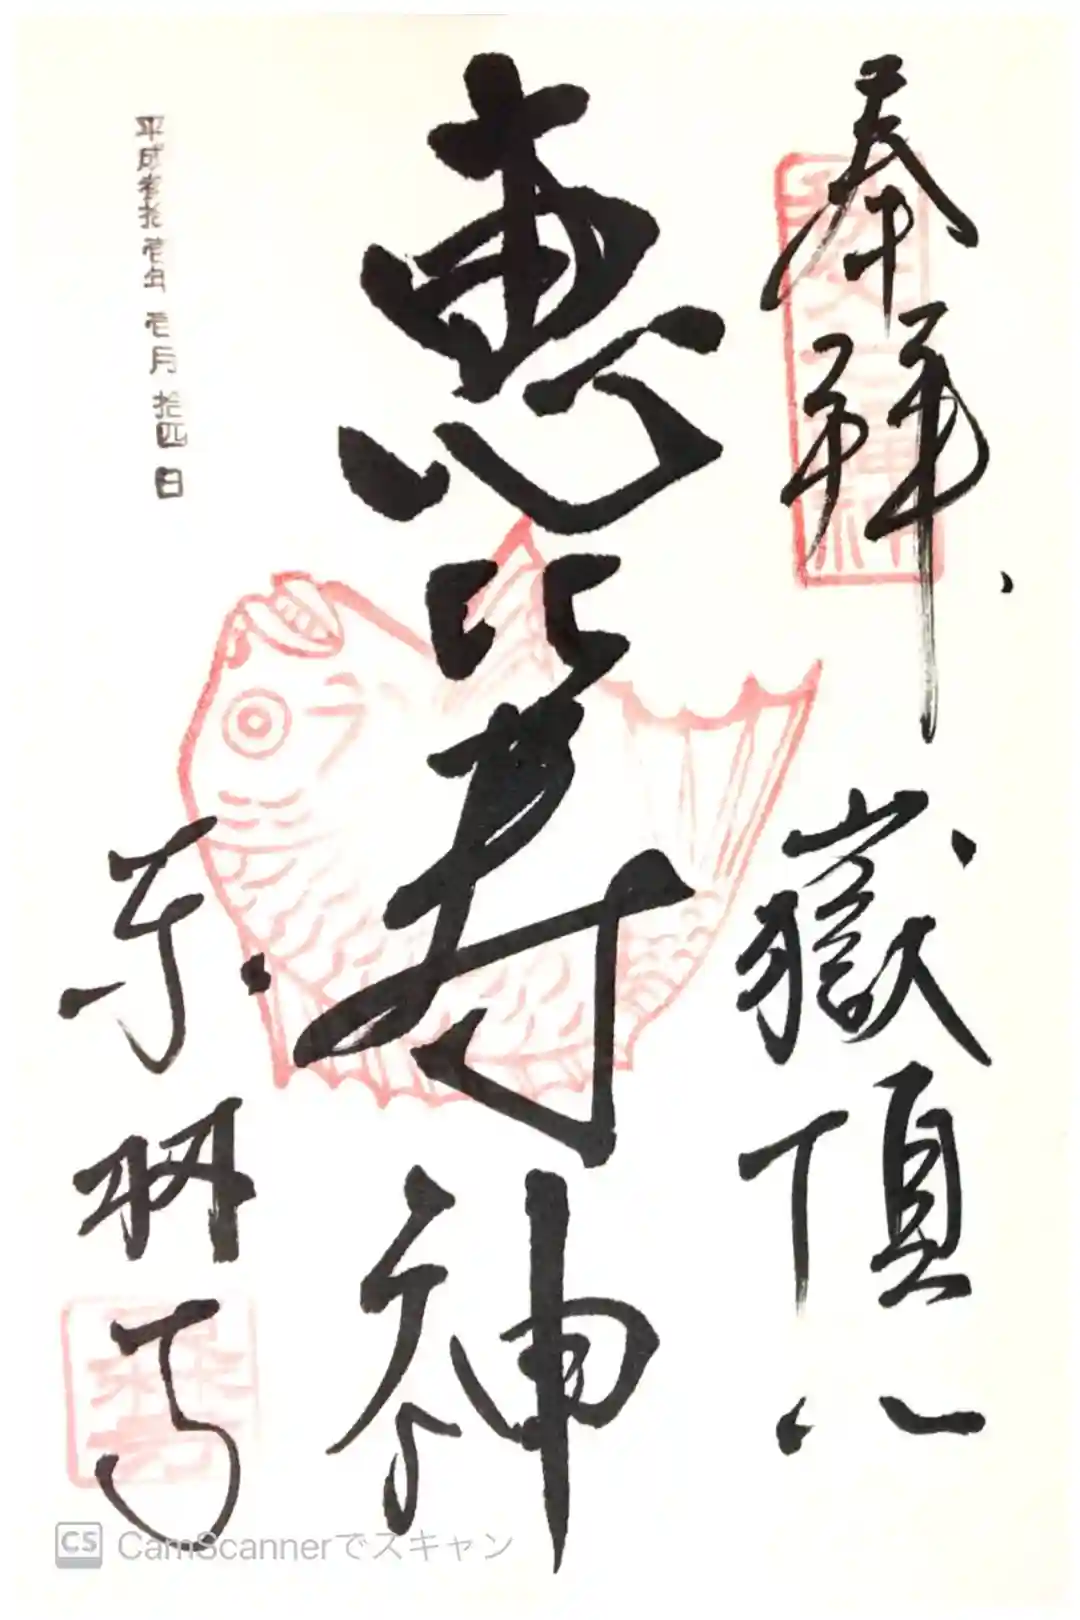 奉拝
嶽頂八
恵比寿神
平成参拾壱年壱月拾四日
CS CamScannerでスキャン